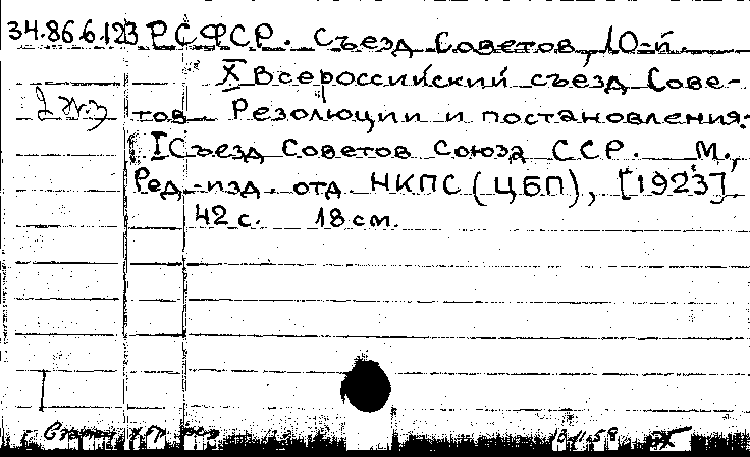 34.86.6.123 РСФСР. Съезд Советов, 10-й.
X Всероссийский съезд Сове-
2 экз тов Резолюции и постановления.
I Съезд Советов Союза ССР. М.,
Ред.-изд. отд. НКПС (ЦБП), [1923].
42 с. 18 см.